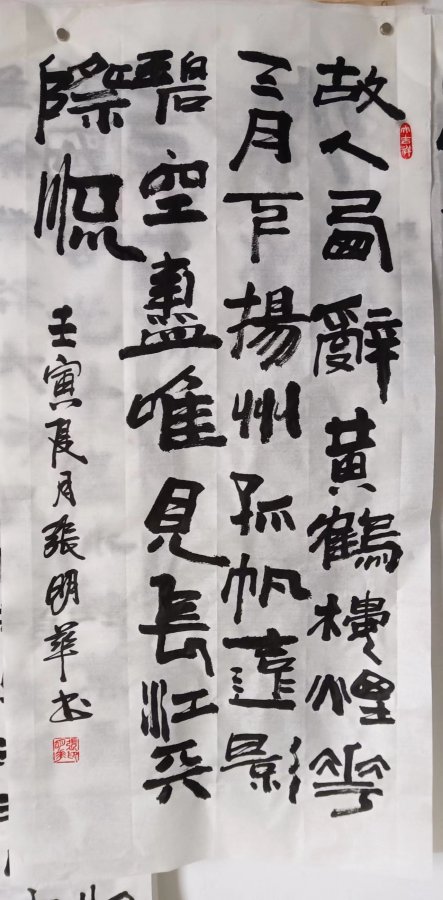 故人西辭黄鶴樓煙花
大吉祥
三月下揚州孤帆遠影
碧空盡唯見長江天
際流
壬寅夏月張明華书